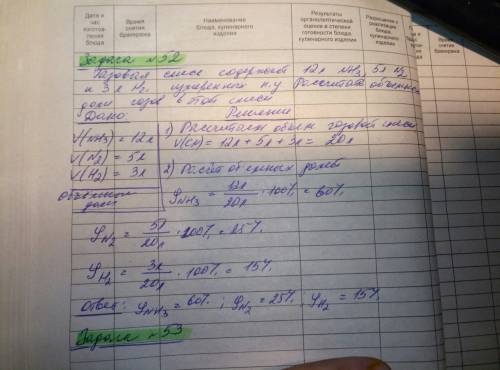 Дата и час изготовления блюда
Время снятия бракеража
Наименование блюда, кулинарного изделия
Результаты органолептической оценки и степени готовности блюда, кулинарного изделия
Разрешение к реализации блюда, кулинарного изделия
Время снятия бракеража
Задача №52
Газовая смесь содержит 12л NH₃, 5л N₂
и 3л H₂, измеренных н.у. Рассчитать объемные
доли газов в этой смеси
Дано: Решение
V(NH₃) = 12л 1) Рассчитаем объем газовой смеси
V(N₂) = 5л V(см) = 12л + 5л + 3л = 20л
V(H₂) = 3л 2) Расчёт объемных долей
Объемные доли
φNH₃ = 12л/20л · 100% = 60%
φN₂ = 5л/20л · 100% = 25%
φH₂ = 3л/20л · 100% = 15%
Ответ: φNH₃ = 60% ; φN₂ = 25% ; φH₂ = 15%
Задача №53